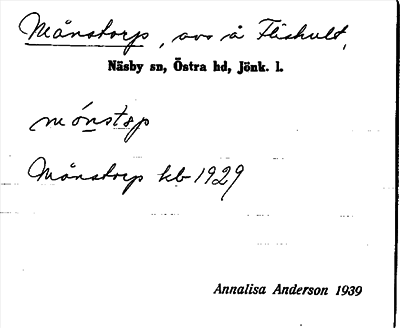 Månstorp, avs å Fliskult,
Näsby sn, Östra hd, Jönk. l.
mónstǝp
Månstorp kb 1929
Annalisa Anderson 1939